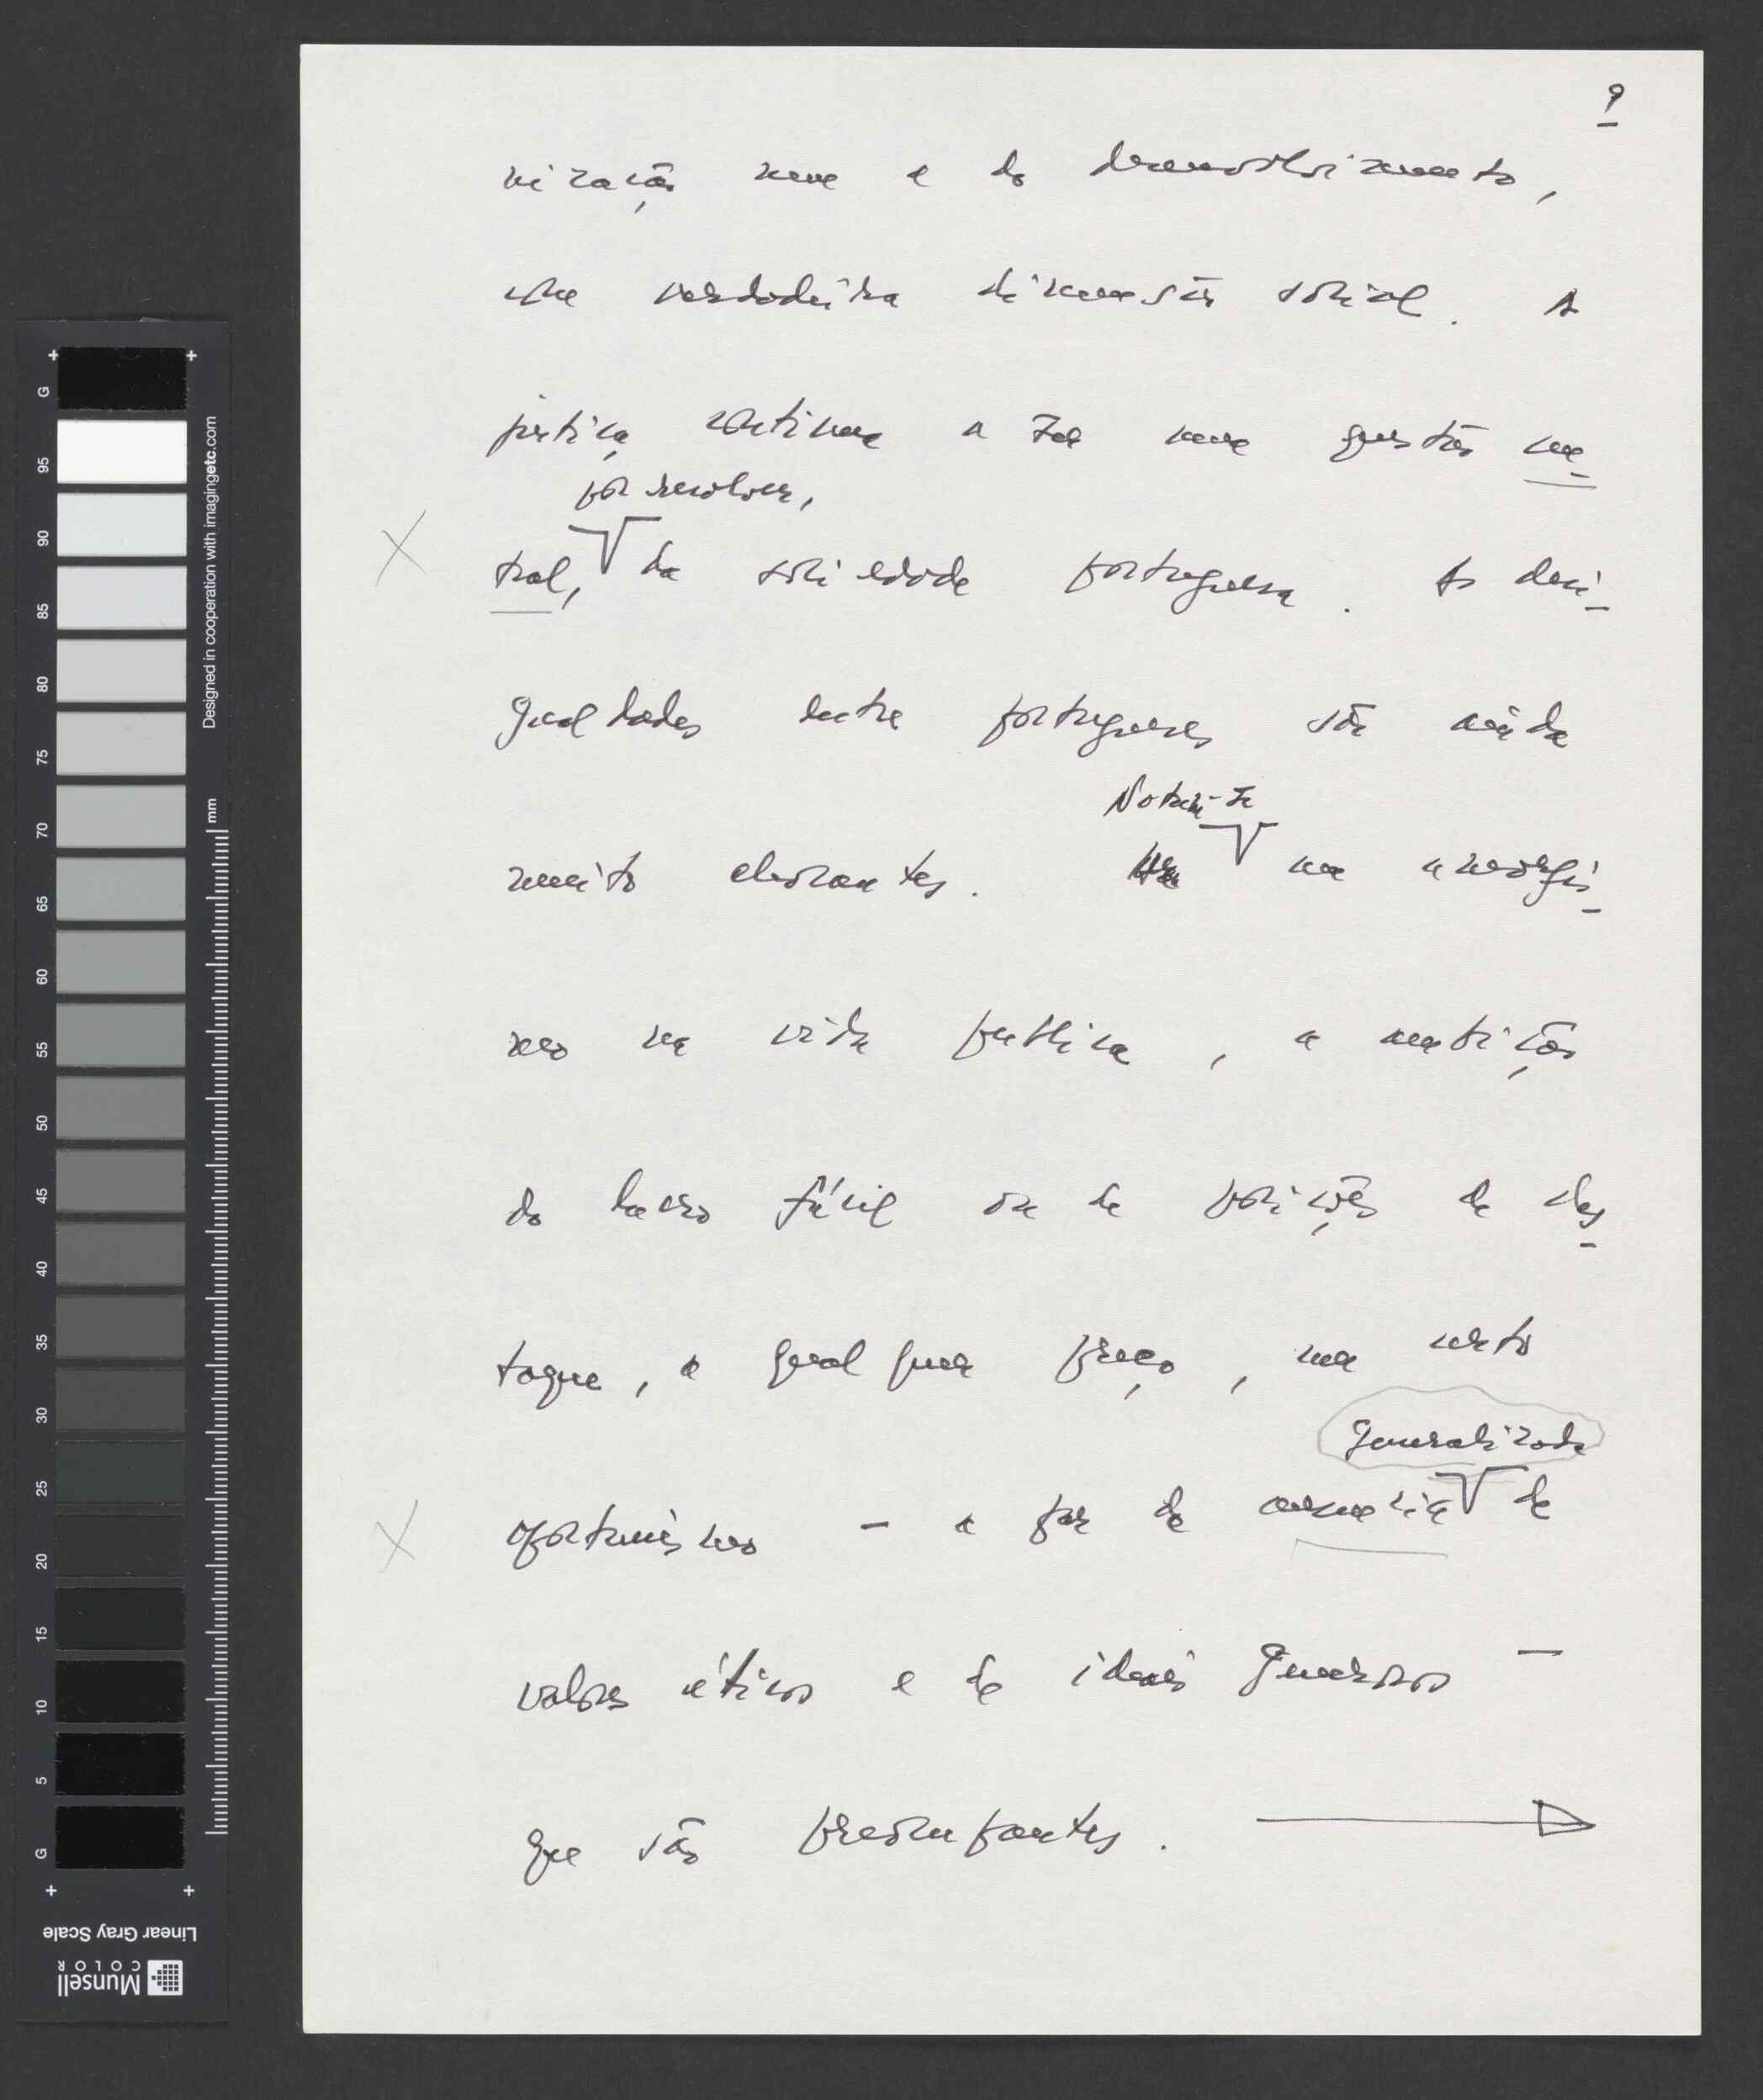 9
nização nem e do desenvolvimento,
uma verdadeira dimensão social. A
justiça continua a ser uma questão cen-
por resolver,
tral, da sociedade portuguesa. As desi-
gualdades entre portugueses são ainda
Notam-se
muito chocantes. na
mo na vida publica, a ambição
do lucro fácil ou de posições de des-
taque, a qualquer preço, um certo
generalizada
oportunismo - a par de ausência de
valores éticos e de ideais generosos -
que são preocupantes.
G
95
90
85
80
75
70
65
60
55
50
45
40
35
30
25
20
15
10
5
G
Designed in cooperation with imagingetc.com
mm
Linear Gray Scale
Munsell
COLOR